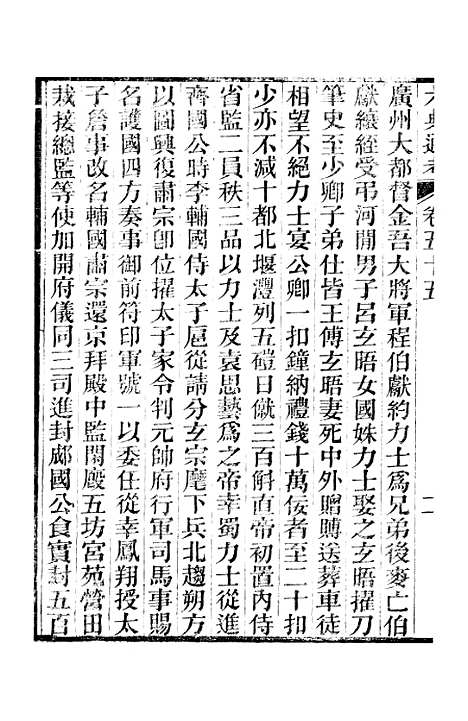 文獻通考 卷五十五 二
廣州大都督金吾大將軍程伯獻約力士爲兄弟後麥亡伯
獻縗絰受弔河間男子呂玄晤女國姝力士娶之玄晤擢刀
筆史至少卿子弟仕皆王傅玄晤妻死中外贈賻送葬車徒
相望不絕力士宴公卿一扣鐘納禮錢十萬佞者至二十扣
少亦不減十都北堰灃列五磑日僦三百斛直帝初置內侍
省監二員秩三品以力士及袁思藝爲之帝幸蜀力士從進
齊國公時李輔國侍太子扈從請分玄宗麾下兵北趨朔方
以圖興復肅宗卽位擢太子家令判元帥府行軍司馬事賜
名護國四方奏事御前符印軍號一以委任從幸鳳翔授太
子詹事改名輔國肅宗還京拜殿中監閑廄五坊宮苑營田
栽接總監等使加開府儀同三司進封郕國公食實封五百